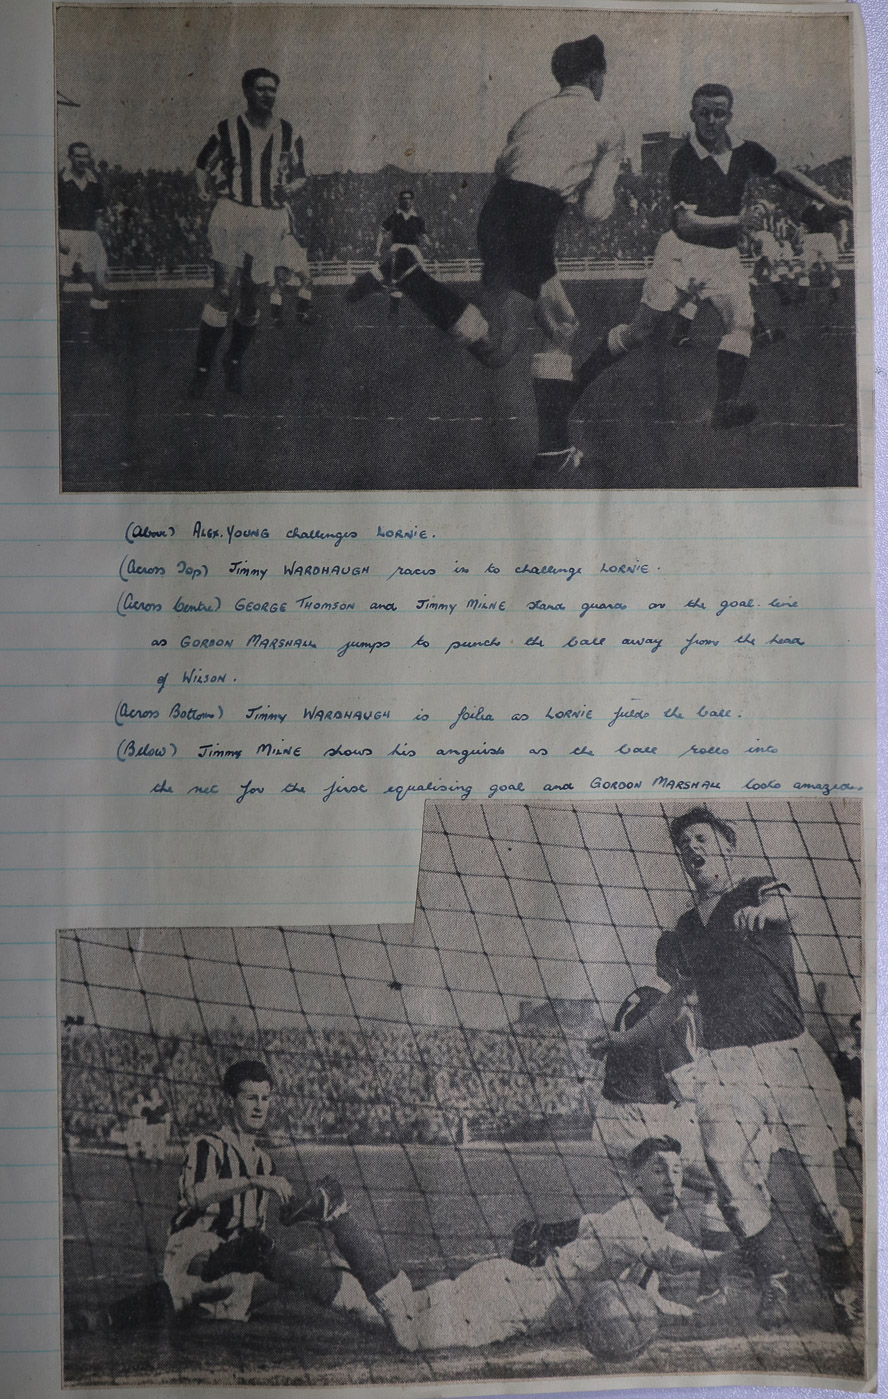 (Above) ALEX. YOUNG challenges LORNIE.
(Across Top) Jimmy WARDHAUGH races in to challenge LORNIE.
(Across Centre) GEORGE THOMSON and Jimmy MILNE stand guard on the goal-line
as GORDON MARSHALL jumps to punch the ball away from the head
of WILSON.
(Across Bottom) Jimmy WARDHAUGH is foiled as LORNIE fields the ball.
(Below) Jimmy MILNE shows his anguish as the ball rolls into
the net for the first equalising goal and GORDON MARSHALL looks amazed.